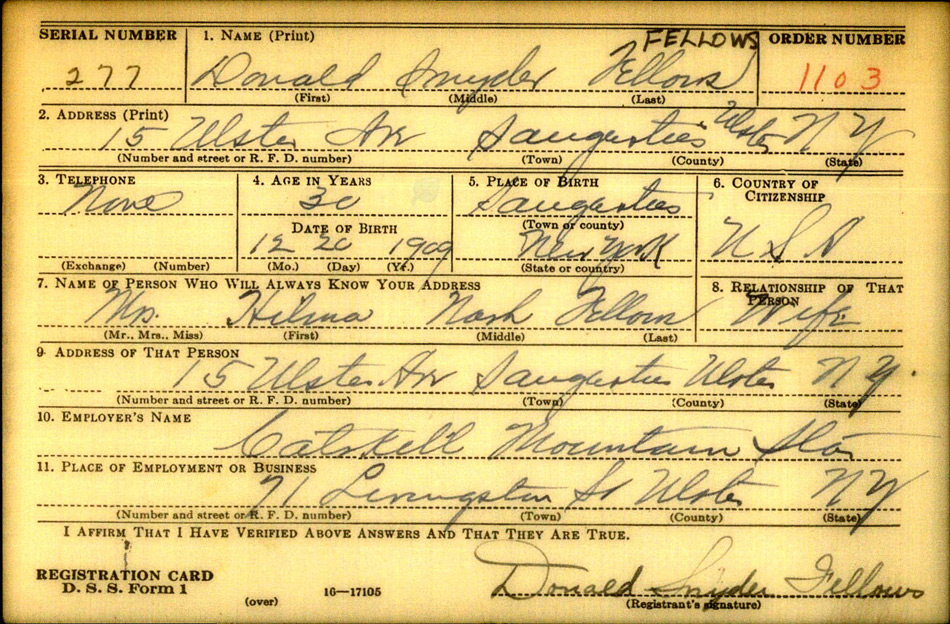 SERIAL NUMBER 1. NAME (Print) FELLOWS ORDER NUMBER
277 Donald Snyder Fellows 1103
(First) (Middle) (Last)
2. ADDRESS (Print)
15 Ulster Av Saugerties Ulster N Y
(Number and street or R. F. D. number) (Town) (County) (State)
3. TELEPHONE 4. AGE IN YEARS 5. PLACE OF BIRTH 6. COUNTRY OF CITIZENSHIP
None 30 Saugerties
DATE OF BIRTH (Town or county)
12 20 1909 New York U S A
(Exchange) (Number) (Mo.) (Day) (Yr.) (State or country)
7. NAME OF PERSON WHO WILL ALWAYS KNOW YOUR ADDRESS 8. RELATIONSHIP OF THAT PERSON
Mrs. Hilma Nash Fellows Wife
(Mr., Mrs., Miss) (First) (Middle) (Last)
9. ADDRESS OF THAT PERSON
15 Ulster Av Saugerties Ulster N Y.
(Number and street or R. F. D. number) (Town) (County) (State)
10. EMPLOYER'S NAME
Catskill Mountain Star
11. PLACE OF EMPLOYMENT OR BUSINESS
71 Livingston St Ulster N Y
(Number and street or R. F. D. number) (Town) (County) (State)
I AFFIRM THAT I HAVE VERIFIED ABOVE ANSWERS AND THAT THEY ARE TRUE.
REGISTRATION CARD
D. S. S. Form 1 Donald Snyder Fellows
(over) 16—17105 (Registrant's signature)